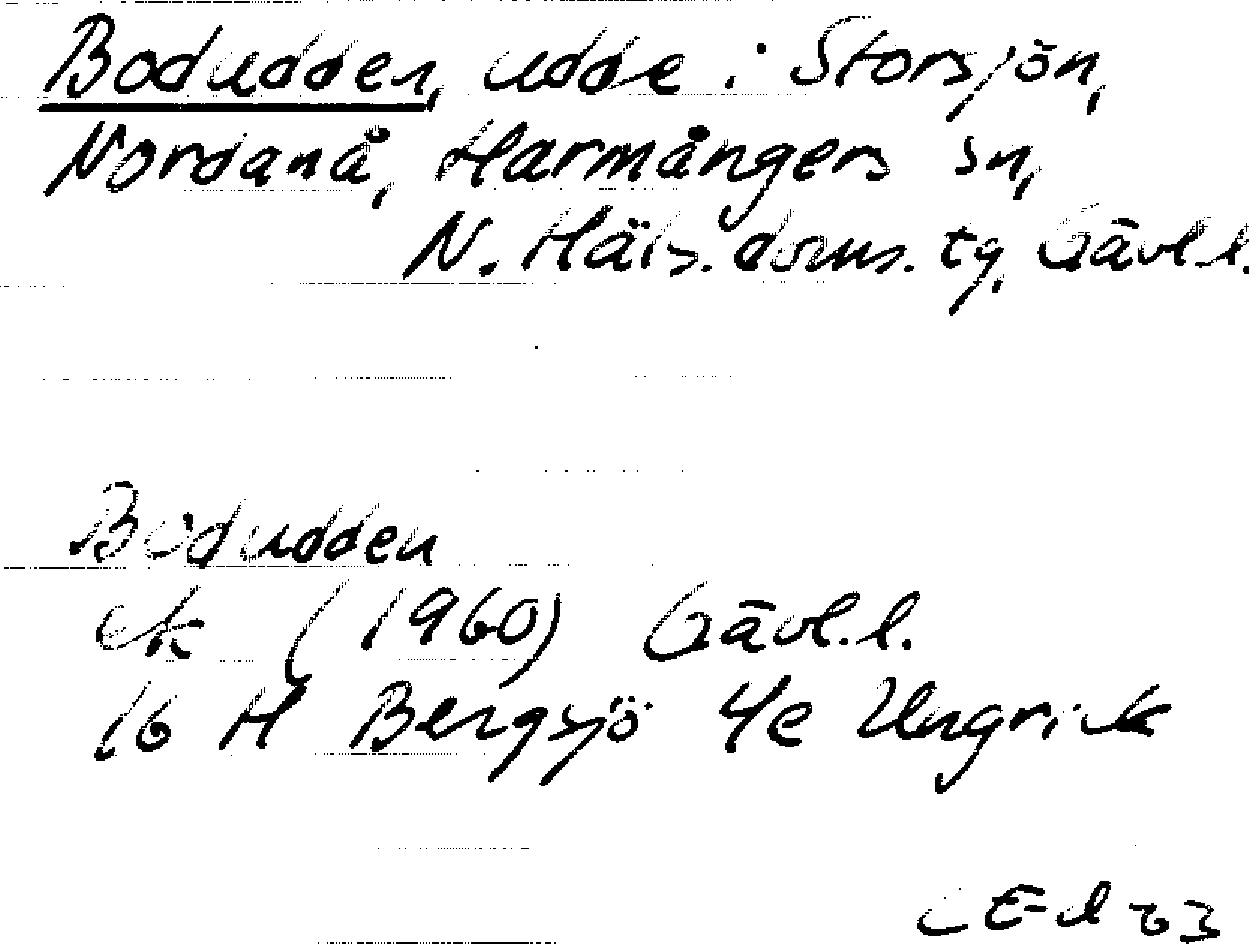 Bodudden, udde i Storsjön,
Nordanå, Harmångers sn,
N. Häls. doms. tg, Gävl.l.
Bodudden
ek (1960) Gävl.l.
16 H Bergsjö 4e Ungrick